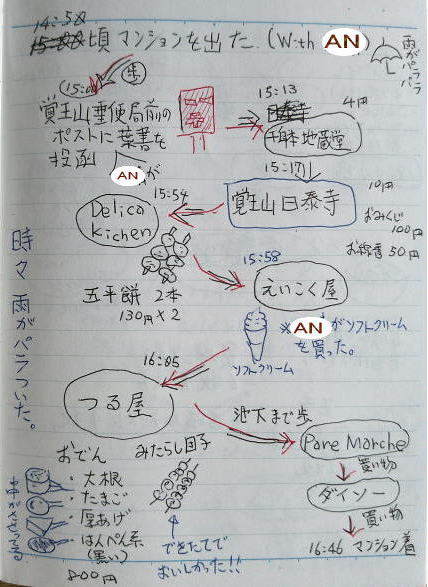 14:58
頃 マンションを出た。(With AN)
雨がパラパラ
歩
覚王山郵便局前の
ポストに葉書を
投函
ANが
15:13
4円
千躰地蔵堂
15:17
覚王山日泰寺
10円
おみくじ
100円
お線香 50円
15:54
Delica
Kichen
五平餅 2本
130円×2
15:58
えいこく屋
※ANがソフトクリーム
を買った。
ソフトクリーム
時々雨がパラついた。
16:05
つる屋
池下まで歩
Pare Marche
買い物
ダイソー
買い物
16:46 マンション着
おでん
・大根
・たまご
・厚あげ
・はんぺん系
(黒い)
800円
みたらし団子
できたてで
おいしかった!!